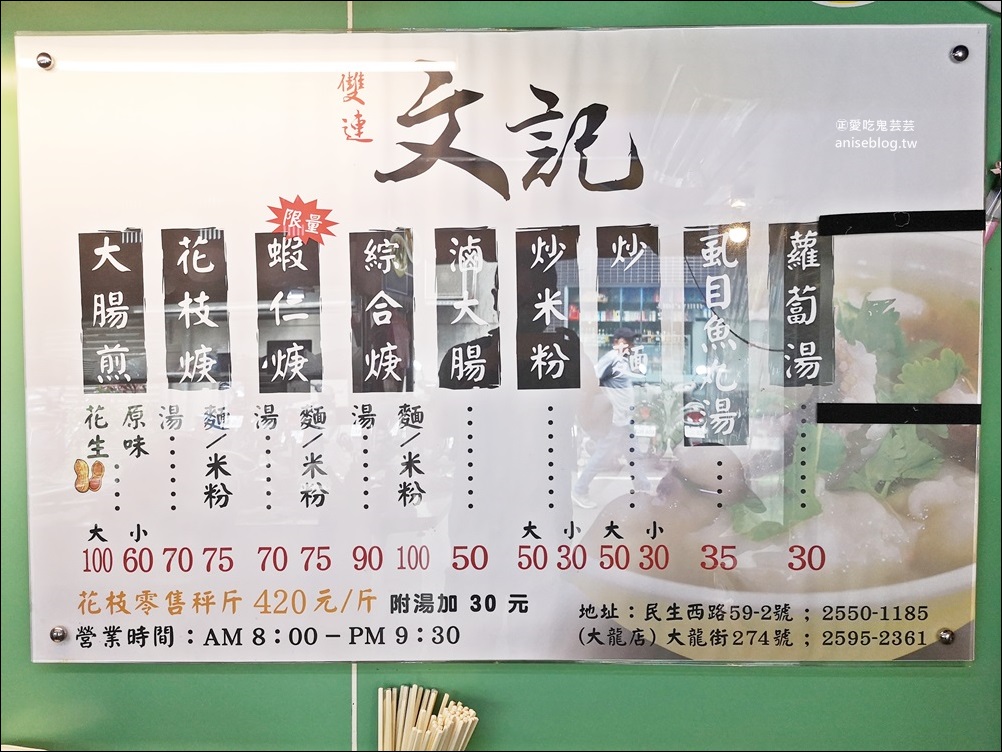 雙連
文記
㊣愛吃鬼芸芸
aniseblog.tw
限量
大腸煎
花枝焿
蝦仁焿
綜合焿
滷大腸
炒米粉
炒麵
虱目魚丸湯
蘿蔔湯
花生 原味
湯 麵/米粉
湯 麵/米粉
湯 麵/米粉
大 小 大 小 大 小
100 60 70 75 70 75 90 100 50 50 30 50 30 35 30
花枝零售秤斤 420元/斤 附湯加 30 元
營業時間：AM 8：00－PM 9：30
地址：民生西路59-2號；2550-1185
(大龍店) 大龍街274號；2595-2361